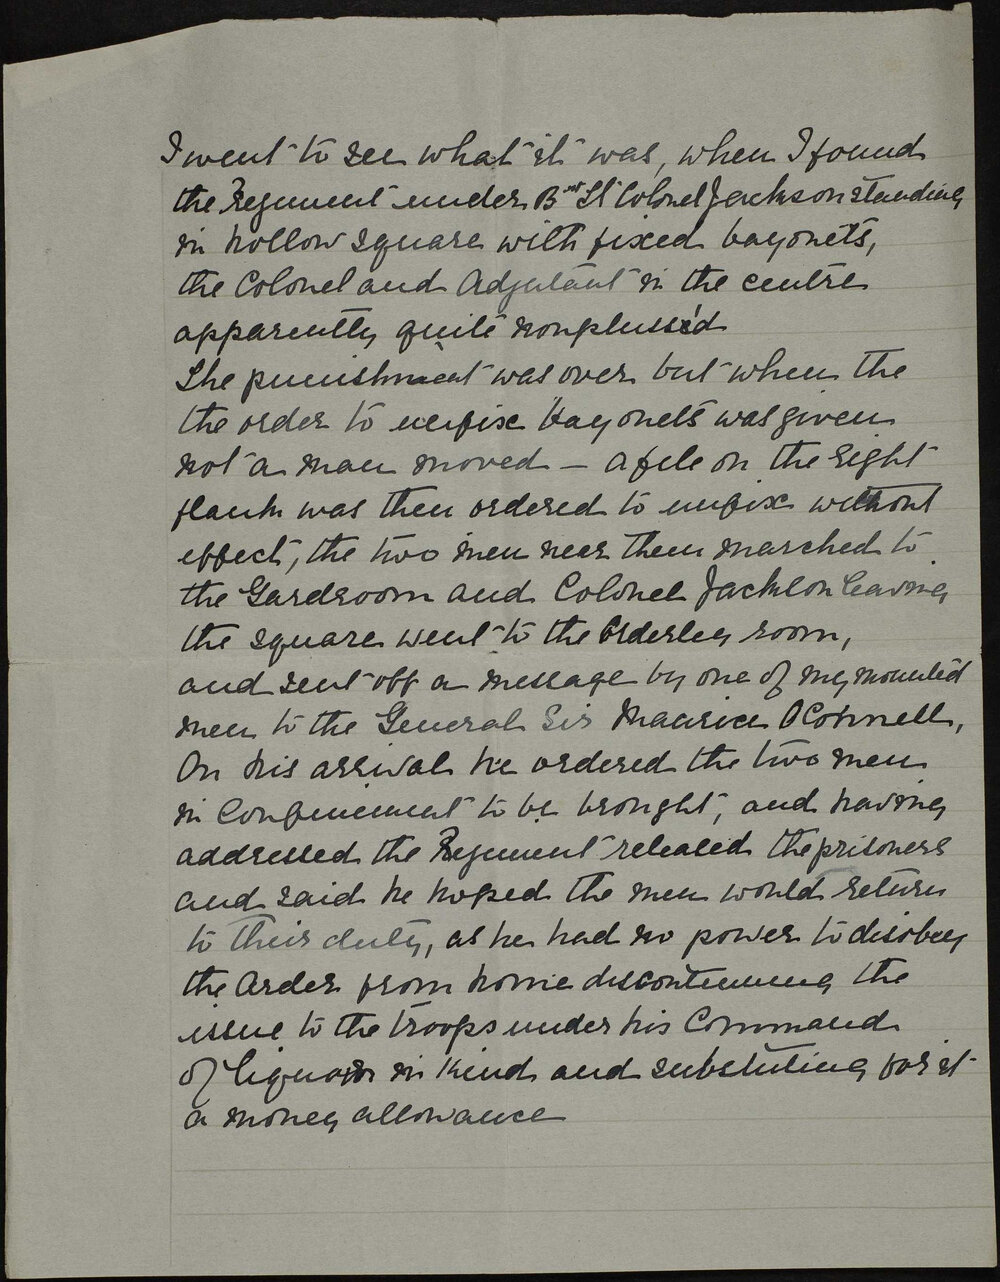 I went to see what it was, when I found
the Regiment under Bvt Lt Colonel Jackson standing
in hollow square with fixed bayonets,
the Colonel and Adjutant in the centre
apparently quite nonpluss'd
The punishment was over but when the
the order to unfix bayonets was given
not a man moved — a file on the right
flank was then ordered to unfix without
effect, the two men were then marched to
the Gardroom and Colonel Jackson leaving
the square went to the Orderley room,
and sent off a message by one of my mounted
men to the General Sir Maurice O'Connell,
On his arrival he ordered the two men
in Confinement to be brought, and having
addressed the Regiment released the prisoners
and said he hoped the men would return
to their duty, as he had no power to disobey
the Order from home discontinuing the
issue to the troops under his Command
of liquor in Kind and substuting for it
a money allowance